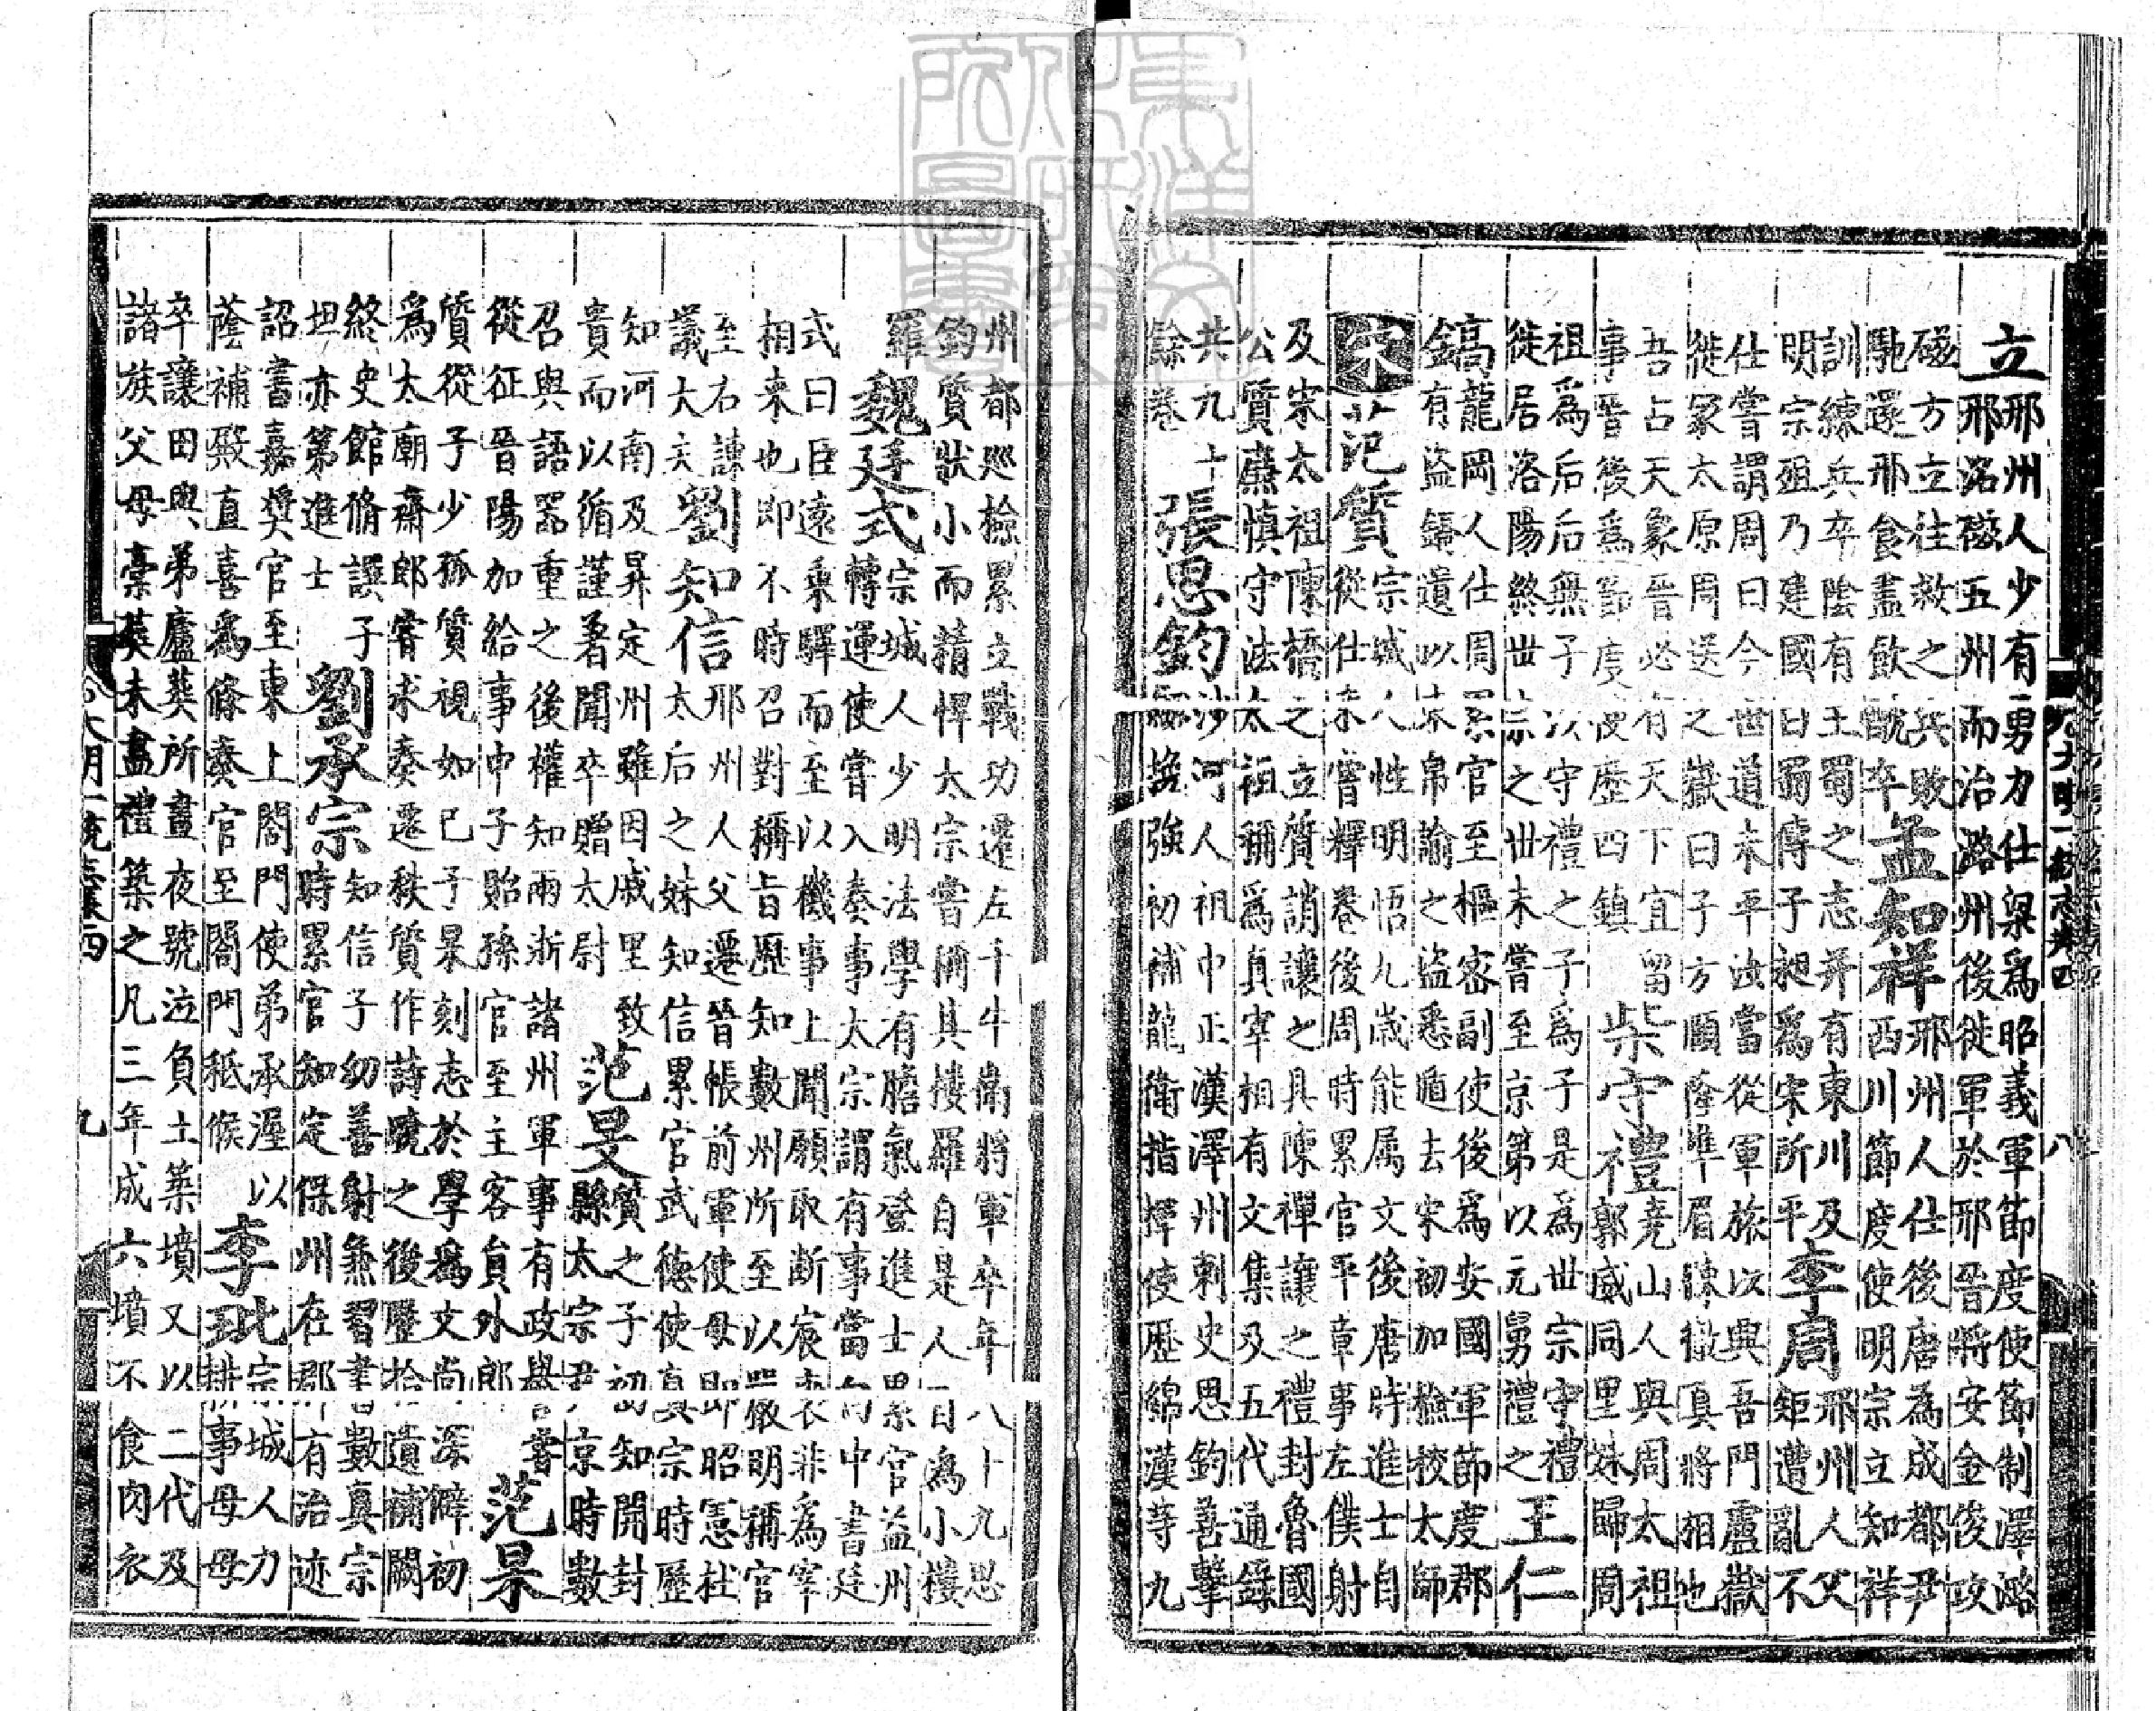 立邢州人少有勇力仕梁爲昭義軍節度使節制澤潞
邢洺磁五州而治潞州後徙軍於邢晉將安金俊攻
磁方立往救之兵敗
馳還邢食盡飲酖卒孟知祥邢州人仕後唐為成都尹
西川節度使明宗立知祥
訓練兵卒陰有王蜀之志并有東川及
明宗殂乃建國曰蜀傳子昶爲宋所平李周邢州人父
矩遭亂不
仕嘗謂周曰今世道未平汝當從軍旅以興吾門盧嶽
徙家太原周送之嶽曰子方頤隆準眉踈徹真將相也
吾占天象晉必有天下宜留
事晉後爲節度使歷四鎮柴守禮堯山人與周太祖
郭威同里妹歸周
祖爲后后無子以守禮之子爲子是爲世宗守禮
徙居洛陽終世宗之世未嘗至京第以元舅禮之王仁
鎬龍岡人仕周累官至樞密副使後爲安國軍節度郡
有盜鎬遣以束帛諭之盜悉遁去宋初加檢校太師
宋范質宗城人性明悟九歲能属文後唐時進士自
從仕未嘗釋卷後周時累官平章事左僕射
及宋太祖陳橋之立質誚讓之具陳禪讓之禮封魯國
公質廉慎守法太祖稱爲真宰相有文集及五代通錄
共九十
餘卷張思鈞沙河人祖中正漢澤州刺史思鈞善擊
拋強初補龍衛指揮使歷綿漢等九
州都巡檢累立戰功遷左千牛衛將軍卒年八十九思
鈞質狀小而精悍太宗嘗稱其樓羅自是人目為小樓
羅魏廷式宗城人少明法學有膽氣登進士累官益州
轉運使嘗入奏事太宗謂有事當向中書廷
式曰臣遠乘驛而至以機事上聞願取断宸衷非為宰
相来也即不時召對稱旨歷知數州所至以嚴明稱官
至右諫
議大夫劉知信邢州人父遷晉帳前軍使母即昭憲杜
太后之妹知信累官武德使真宗時歷
知河南及昇定州雖因戚里致
貴而以循謹著聞卒贈太尉范旻質之子初知開封
縣太宗尹京時數
召與語器重之後權知兩浙諸州軍事有政譽嘗
從征晉陽加給事中子貽孫官至主客員外郎范杲
質從子少孤質視如己子杲刻志於學爲文尚深僻初
爲太廟齋郎嘗求奏遷秩質作詩曉之後歷拾遺補闕
終史館脩譔子
坦亦第進士劉承宗知信子幼善射兼習書數真宗
時累官知定保州在郡有治迹
詔書嘉奬官至東上閤門使弟承渥以
蔭補殿直喜爲條奏官至閤門祗候李玭宗城人力
耕事母母
卒讓田與弟廬葬所晝夜號泣負土築墳又以二代及
諸族父母藁葬未盡禮築之凡三年成六墳不食肉衣
大明一統志卷四
八
大明一統志卷四
九